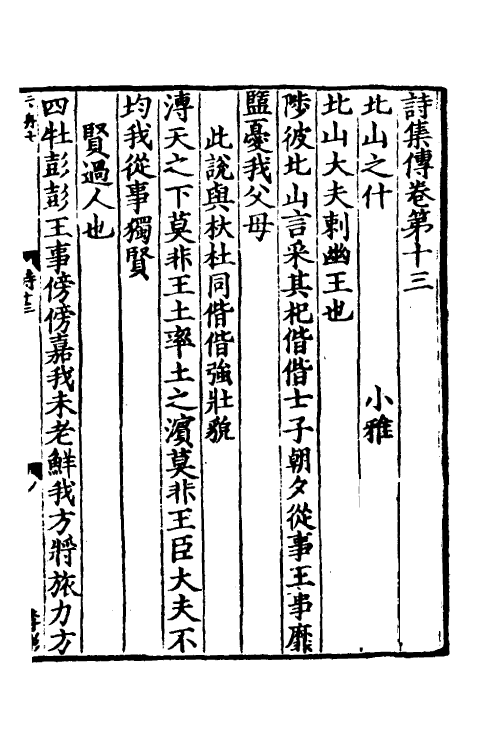 詩集傳卷第十三
北山之什
小雅
北山大夫刺幽王也
陟彼北山言采其杞偕偕士子朝夕從事王事靡
盬憂我父母
此說與杕杜同偕偕強壯貌
溥天之下莫非王土率土之濱莫非王臣大夫不
均我從事獨賢
賢過人也
四牡彭彭王事傍傍嘉我未老鮮我方將旅力方